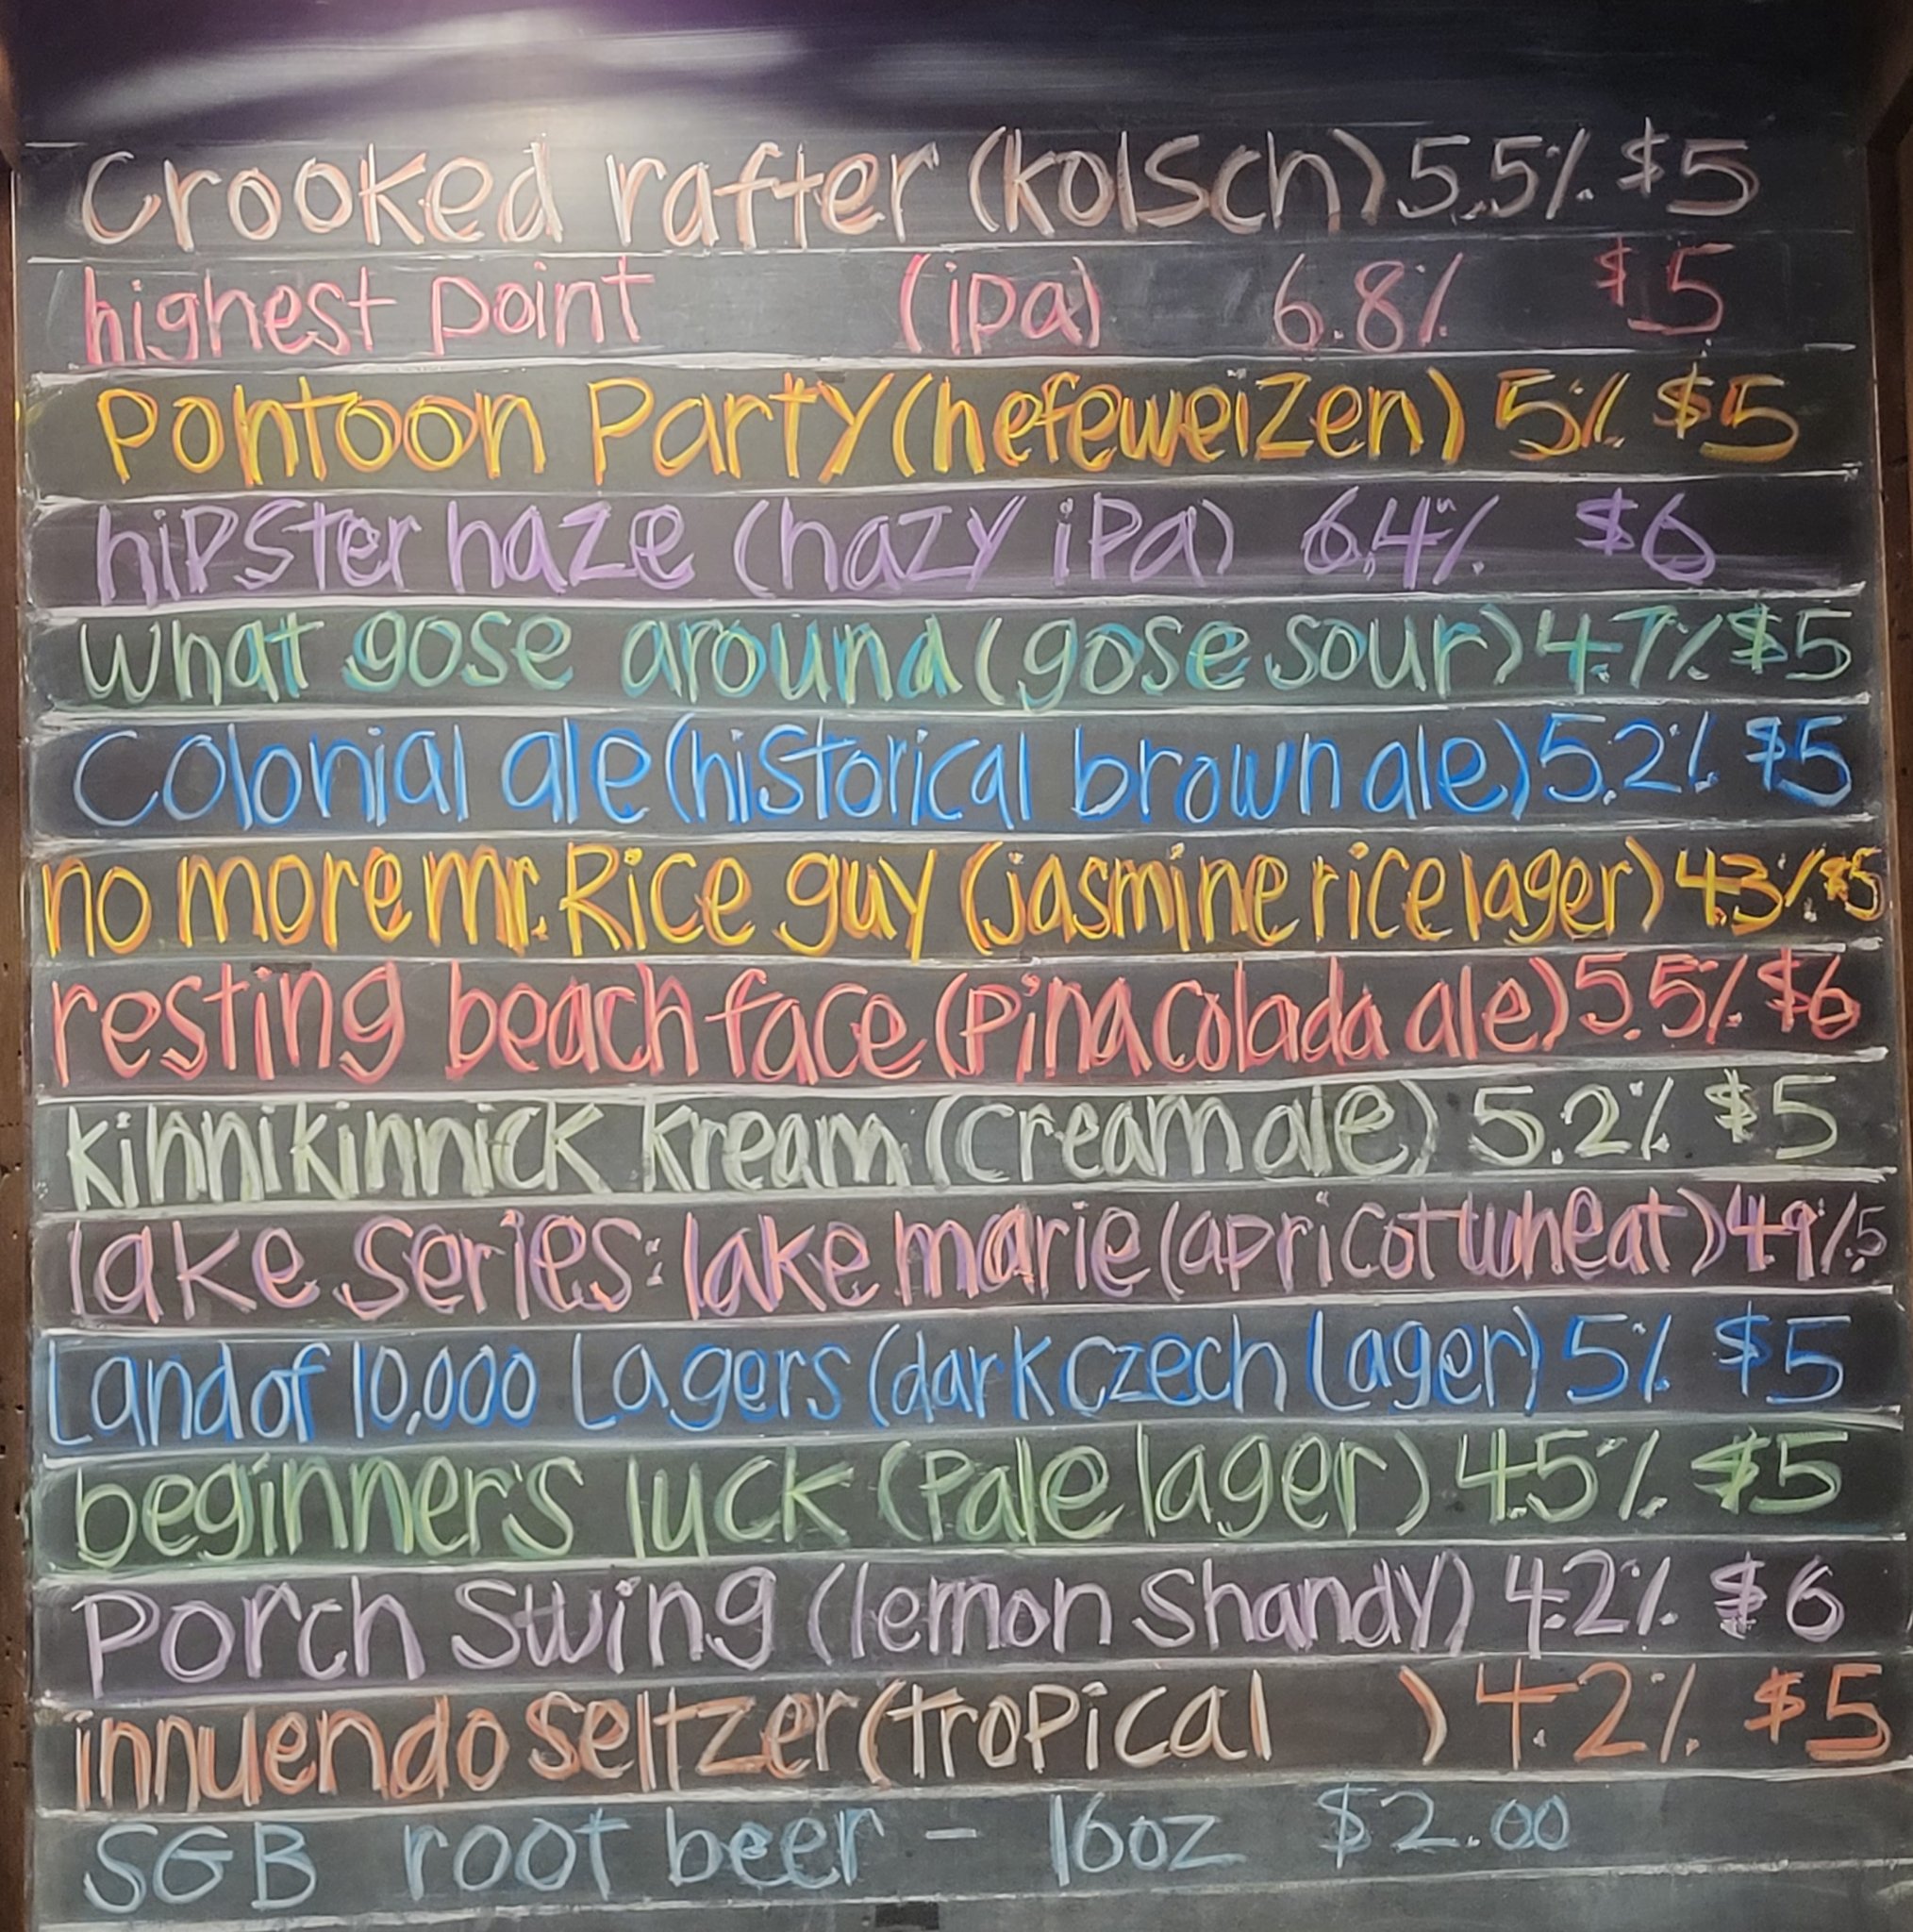 Crooked rafter (kolsch) 5.5% $5
highest point (ipa) 6.8% $5
Pontoon Party (hefeweizen) 5% $5
hipster haze (hazy ipa) 6.4% $6
What gose around (gose sour) 4.7% $5
Colonial ale (historical brown ale) 5.2% $5
no more mr. Rice guy (jasmine rice lager) 4.3% $5
resting beach face (Pina colada ale) 5.5% $6
kinnikinnick kream (cream ale) 5.2% $5
lake series: lake marie (apricot wheat) 4.9% 5
Land of 10,000 Lagers (dark czech Lager) 5% $5
beginner's luck (Pale lager) 4.5% $5
Porch Swing (lemon Shandy) 4.2% $6
innuendo seltzer (tropical ) 4.2% $5
SGB root beer - 16oz $2.00